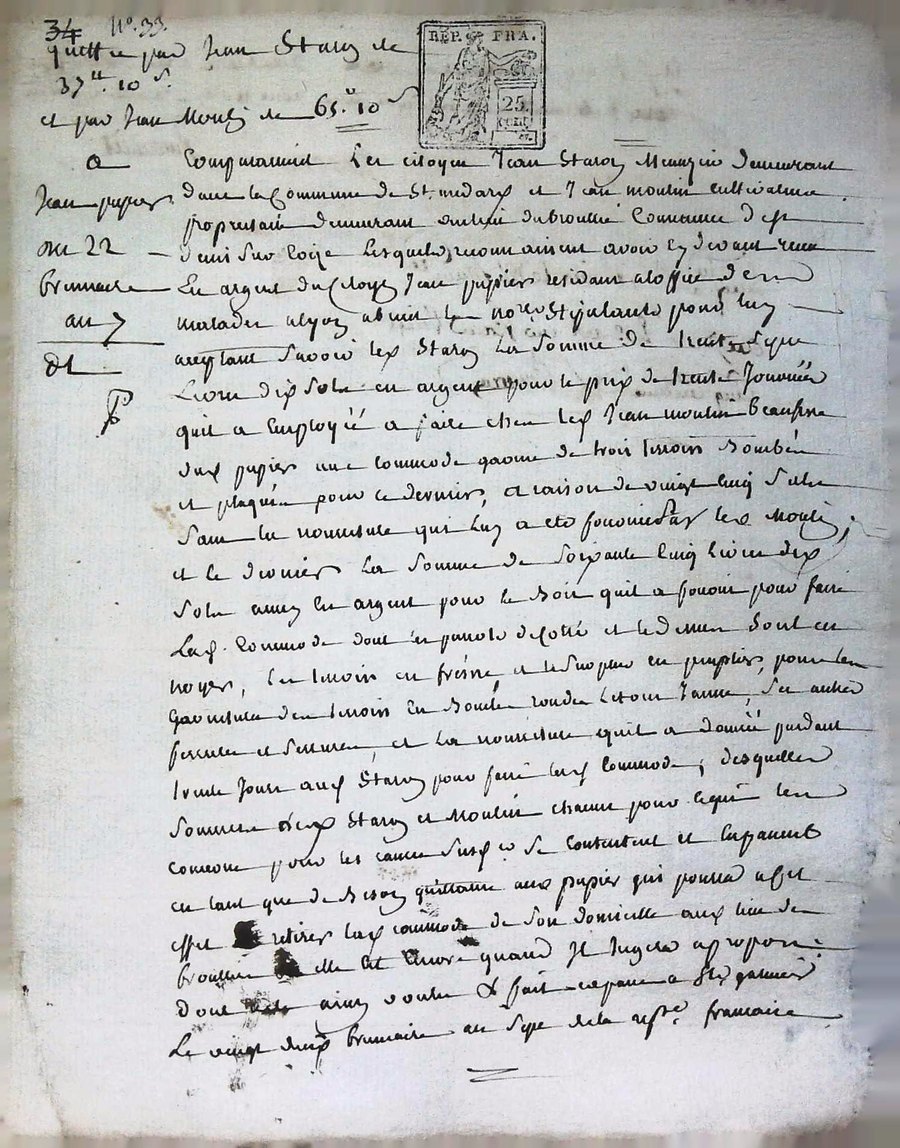 34 N.° 33.
quitt.ce par Jean Staron de
37.tt 10 s.
et par Jean Moulin de 65.tt 10 s
REP. FRA.
25
CENT.
a
Jean papier
du 22
brumaire
an 7
dt
Comparaissent Les citoyen Jean Staron Menuzier demeurant
dans la Commune de St. medard et Jean moulin cultivateur
propriétaire demeurant au lieu du broullier Commune d'
Lesquels reconnaissent avoir cy devant receu
En argent du Citoyen Jean papier residant a loffice des
malades a lyon absent le no.re Stipulant pour luy
acceptant Savoir led Staron La Somme de trente Sept
Livre dix Sols en argent pour le prix de trente Journées
quil a Employéé a faire chez led Jean moulin beaufrere
dud papier une Commode garnie de trois tiroirs Bombée
et plaquée pour ce dernier, a raison de vingt Cinq Sols
Sans la nourriture qui Luy a été fournie Par led Moulin;
et le dernier La Somme de Soixante Cinq Livre dix
Sols aussi En argent pour le Bois quil a fourni pour faire
Lad. Commode dont les et le dessus Sont en
noyer, Les tiroirs en frêne et en peuplier, pour les
garniture des tiroirs En Jaune, Les autres
et Serrures, et La nourriture quil a donnée pendant
trente Jours aud Staron pour faire lad Commode, desquelles
Sommes lesd Staron et Moulin chacun pour Ce qui les
concerne pour les causes Susd. Se Contentent et En passent
en tant que de Besoin quittance aud papier qui pourra a cet
effet retirer lad commode de Son domicille aud lieu de
broullier ou elle Est Encore quand Il Jugera a propos.
dont acte ainsy voulu & fait et passé a St. galmier
Le vingt deux brumaire an Sept de la rép.e francaise